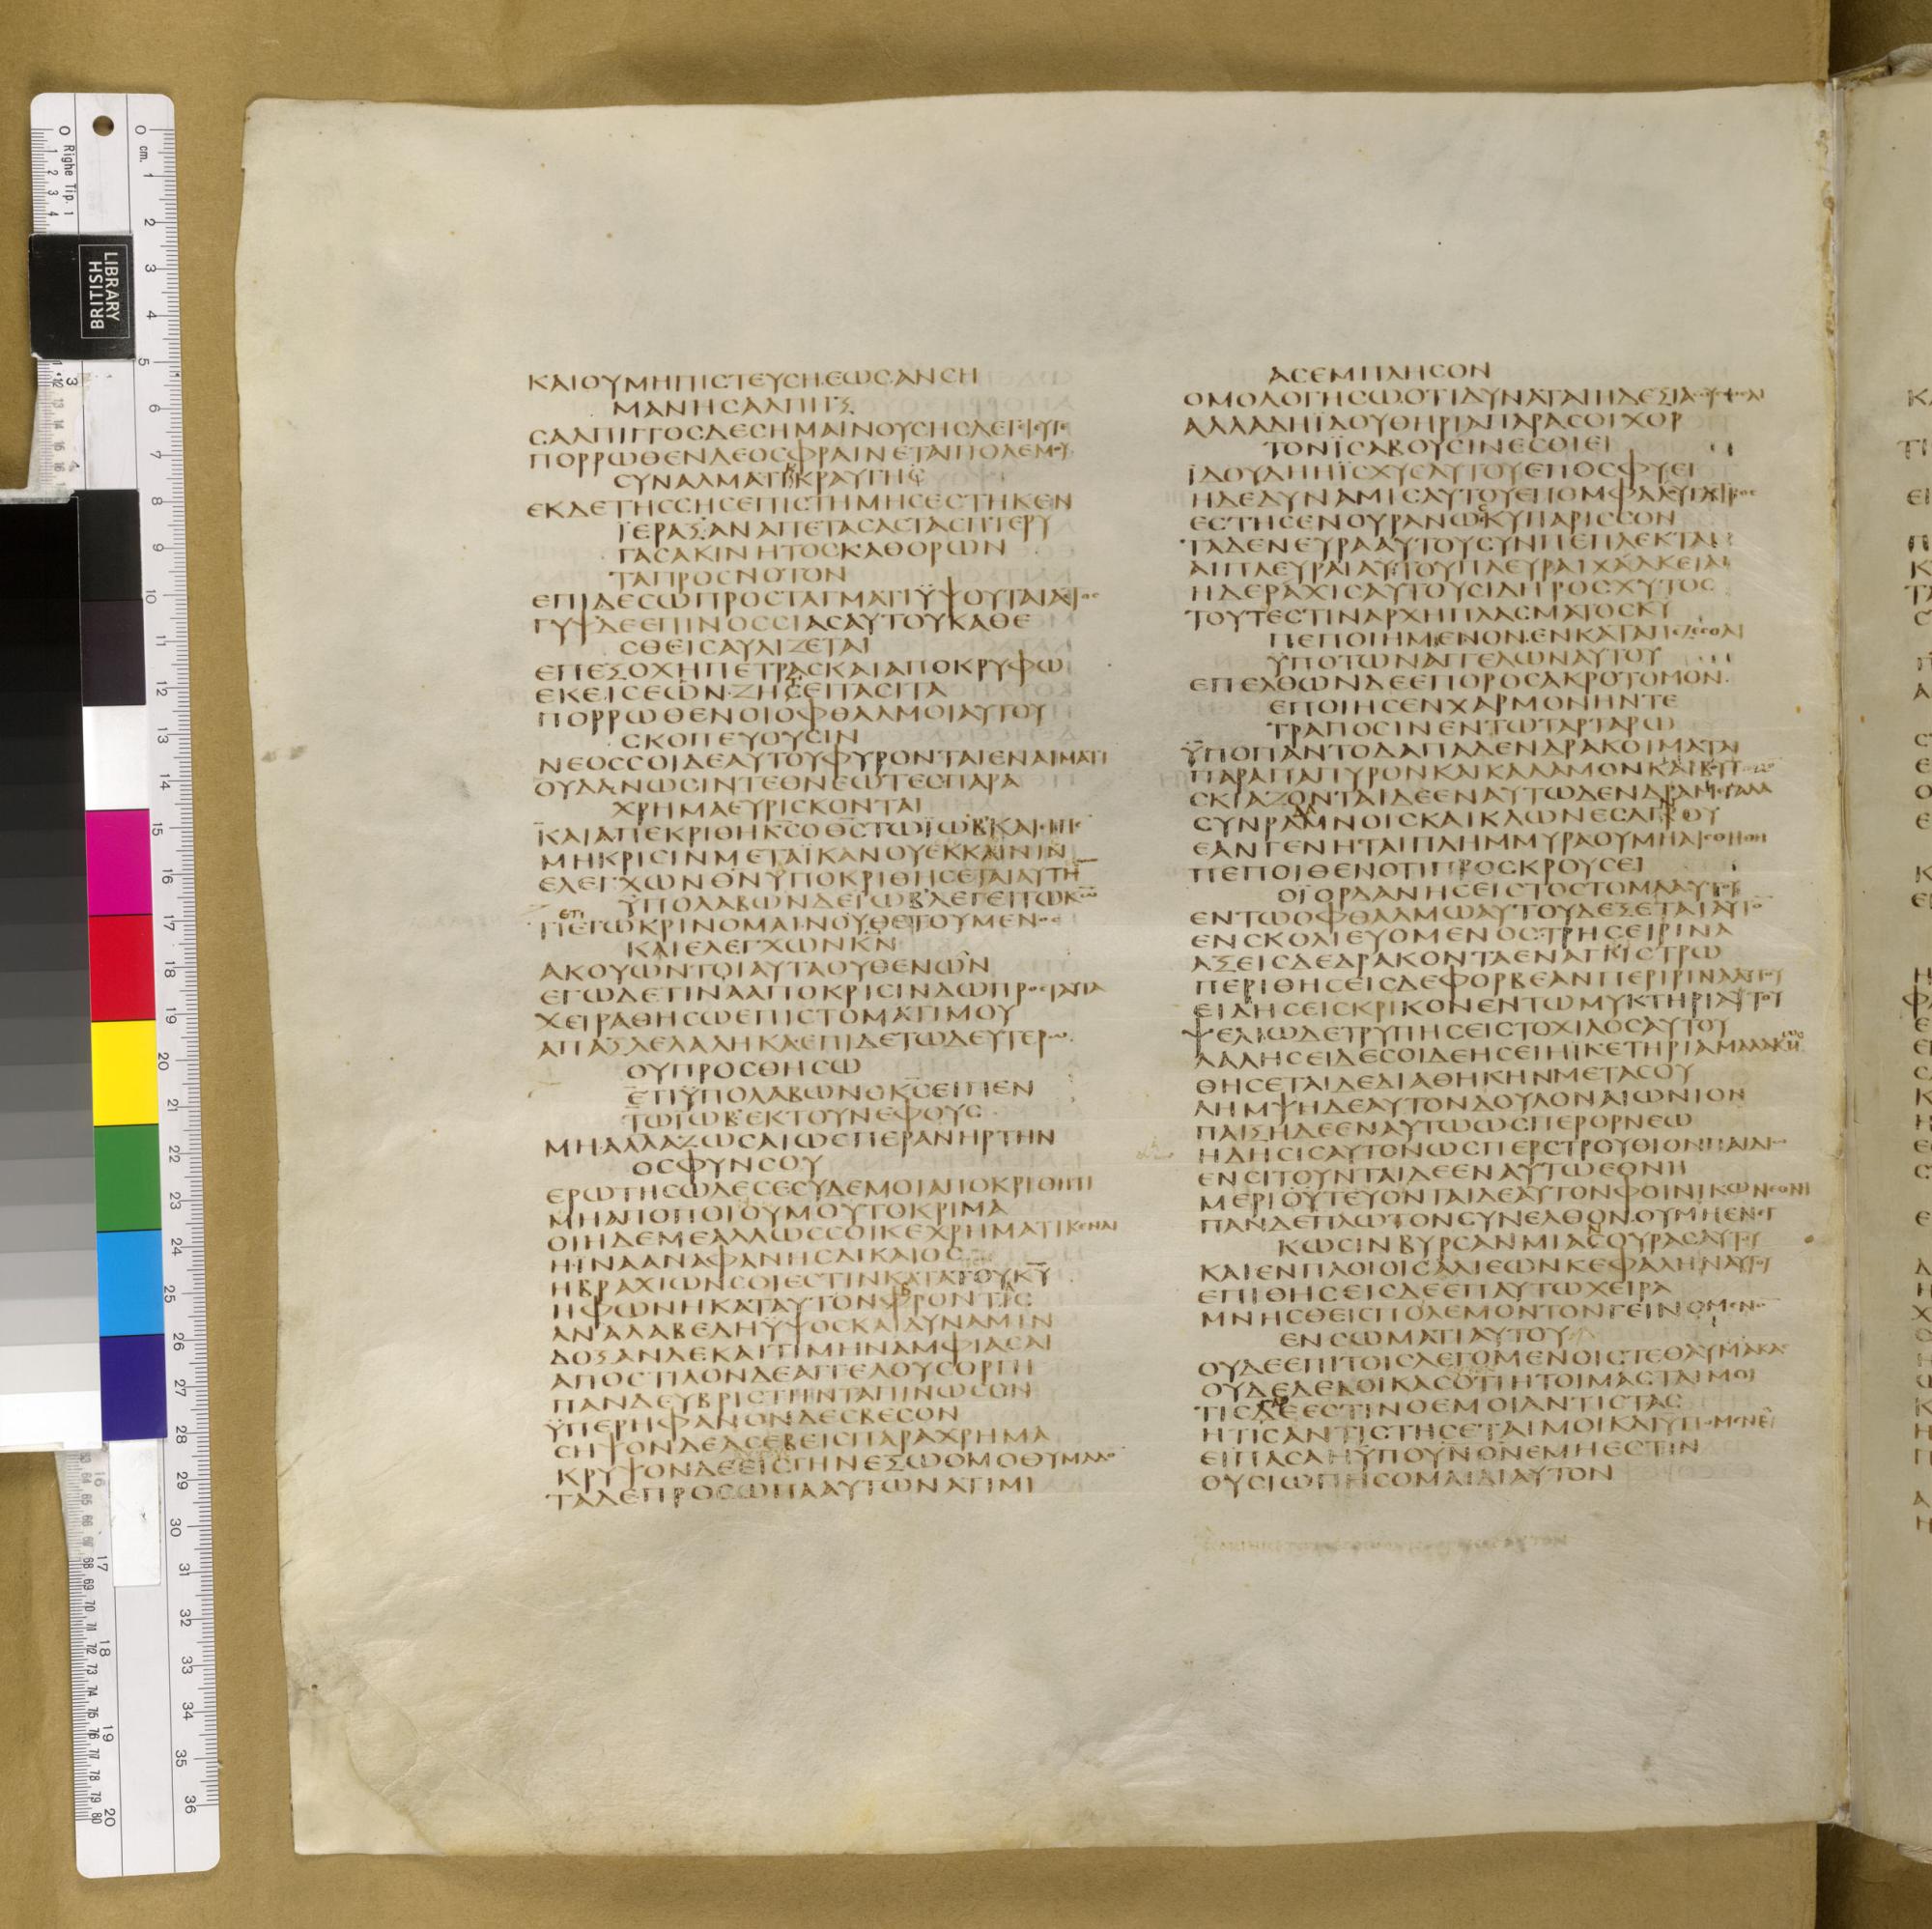 ΚΑΙΟΥΜΗΠΙCΤΕΥCΗΕΩCΑΝCΗ
ΜΑΝΗCΑΛΠΙΓΞ
CΑΛΠΙΓΓΟCΔΕCΗΜΑΙΝΟΥCΗCΛΕΓΕΙΕΥΓΕ
ΠΟΡΡΩΘΕΝΔΕΟCΦΡΑΙΝΕΤΑΙΠΟΛΕΜΟΥ
CΥΝΑΛΜΑΤΙΚΡΑΥΓΗC
ΕΚΔΕΤΗCCΗCΕΠΙCΤΗΜΗCΕCΤΗΚΕΝ
ΪΕΡΑΞΑΝΑΠΕΤΑCΑCΤΑCΠΤΕΡΥ
ΓΑCΑΚΙΝΗΤΟCΚΑΘΟΡΩΝ
ΤΑΠΡΟCΝΟΤΟΝ
ΕΠΙΔΕCΩΠΡΟCΤΑΓΜΑΤΙΫΨΟΥΤΑΙΑΕΤΟC
ΓΥΨΔΕΕΠΙΝΟCCΙΑCΑΥΤΟΥΚΑΘΕ
CΘΕΙCΑΥΛΙΖΕΤΑΙ
ΕΠΕΞΟΧΗΠΕΤΡΑCΚΑΙΑΠΟΚΡΥΦΩ
ΕΚΕΙCΕΩΝΖΗCΕΙΤΑCΙΤΑ
ΠΟΡΡΩΘΕΝΟΙΟΦΘΑΛΜΟΙΑΥΤΟΥ
CΚΟΠΕΥΟΥCΙΝ
ΝΕΟCCΟΙΔΕΑΥΤΟΥΦΥΡΟΝΤΑΙΕΝΑΙΜΑΤΙ
ΟΥΔΑΝΩCΙΝΤΕΘΝΕΩΤΕCΠΑΡΑ
ΧΡΗΜΑΕΥΡΙCΚΟΝΤΑΙ
ΚΑΙΑΠΕΚΡΙΘΗΚCΟΘCΤΩΪΩΒΚΑΙΕΙΠΕ
ΜΗΚΡΙCΙΝΜΕΤΑΪΚΑΝΟΥΕΚΚΛΙΝΙΝ
ΕΛΕΓΧΩΝΘΝΥΠΟΚΡΙΘΗCΕΤΑΙΑΥΤΗ
ΫΠΟΛΑΒΩΝΔΕΪΩΒΛΕΓΕΙΤΩΚΩ
ΕΤΙ
ΤΙΕΓΩΚΡΙΝΟΜΑΙΝΟΥΘΕΤΟΥΜΕΝΟC
ΚΑΙΕΛΕΓΧΩΝΚΝ
ΑΚΟΥΩΝΤΟΙΑΥΤΑΟΥΘΕΝΩΝ
ΕΓΩΔΕΤΙΝΑΑΠΟΚΡΙCΙΝΔΩΠΡΟCΤΑΥΤΑ
ΧΕΙΡΑΘΗCΩΕΠΙCΤΟΜΑΤΙΜΟΥ
ΑΠΑΞΛΕΛΑΛΗΚΑΕΠΙΔΕΤΩΔΕΥΤΕΡΩ
ΟΥΠΡΟCΘΗCΩ
ΕΤΙΫΠΟΛΑΒΩΝΟΚCΕΙΠΕΝ
ΤΩΪΩΒΕΚΤΟΥΝΕΦΟΥC
ΜΗΑΛΛΑΖΩCΑΙΩCΠΕΡΑΝΗΡΤΗΝ
ΟCΦΥΝCΟΥ
ΕΡΩΤΗCΩΔΕCΕCΥΔΕΜΟΙΑΠΟΚΡΙΘΗΤΙ
ΜΗΑΠΟΠΟΙΟΥΜΟΥΤΟΚΡΙΜΑ
ΟΙΗΔΕΜΕΑΛΛΩCCΟΙΚΕΧΡΗΜΑΤΙΚΕΝΑΙ
ΗΙΝΑΑΝΑΦΑΝΗCΔΙΚΑΙΟC
ΗΒΡΑΧΙΩΝCΟΙΕCΤΙΝΚΑΤΑΤΟΥΚΥ
ΗΦΩΝΗΚΑΤΑΥΤΟΝΦΡΟΝΤΙC
ΑΝΑΛΑΒΕΔΗΫΨΟCΚΑΙΔΥΝΑΜΙΝ
ΔΟΞΑΝΔΕΚΑΙΤΙΜΗΝΑΜΦΙΑCΑΙ
ΑΠΟCΤΙΛΟΝΔΕΑΓΓΕΛΟΥCΟΡΓΗ
ΠΑΝΔΕΥΒΡΙCΤΗΝΤΑΠΙΝΩCΟΝ
ΫΠΕΡΗΦΑΝΟΝΔΕCΒΕCΟΝ
CΗΨΟΝΔΕΑCΕΒΕΙCΠΑΡΑΧΡΗΜΑ
ΚΡΥΨΟΝΔΕΕΙCΓΗΝΕΞΩΟΜΟΘΥΜΑΔΟ
ΤΑΔΕΠΡΟCΩΠΑΑΥΤΩΝΑΤΙΜΙ
ΑCΕΜΠΛΗCΟΝ
ΟΜΟΛΟΓΗCΩΟΤΙΔΥΝΑΤΑΙΗΔΕΞΙΑCΟΥCΩCΑΙ
ΑΛΛΑΔΗΪΔΟΥΘΗΡΙΑΠΑΡΑCΟΙΧΟΡ
ΤΟΝΪCΑΒΟΥCΙΝΕCΘΙΕΙ
ΪΔΟΥΔΗΗΪCΧΥCΑΥΤΟΥΕΠΟCΦΥΕΙ
ΗΔΕΔΥΝΑΜΙCΑΥΤΟΥΕΠΟΜΦΑΛΟΥΓΑCΤΡΟC
ΕCΤΗCΕΝΟΥΡΑΝΩCΚΥΠΑΡΙCCΟΝ
ΤΑΔΕΝΕΥΡΑΑΥΤΟΥCΥΝΠΕΠΛΕΚΤΑΙ
ΑΙΠΛΕΥΡΑΙΑΥΤΟΥΠΛΕΥΡΑΙΧΑΛΚΕΙΑΙ
ΗΔΕΡΑΧΙCΑΥΤΟΥCΙΔΗΡΟCΧΥΤΟC
ΤΟΥΤΕCΤΙΝΑΡΧΗΠΛΑCΜΑΤΟCΚΥ
ΠΕΠΟΙΗΜΕΝΟΝΕΝΚΑΤΑΠΕΖΕCΘΑΙ
ΫΠΟΤΩΝΑΓΓΕΛΩΝΑΥΤΟΥ
ΕΠΕΛΘΩΝΔΕΕΠΟΡΟCΑΚΡΟΤΟΜΟΝ
ΕΠΟΙΗCΕΝΧΑΡΜΟΝΗΝΤΕ
ΤΡΑΠΟCΙΝΕΝΤΩΤΑΡΤΑΡΩ
ΫΠΟΠΑΝΤΟΔΑΠΑΔΕΝΔΡΑΚΟΙΜΑΤΑΙ
ΠΑΡΑΠΑΠΥΡΟΝΚΑΙΚΑΛΑΜΟΝΚΑΙΒΟΥΤΟΜΟΝ
CΚΙΑΖΟΝΤΑΙΔΕΕΝΑΥΤΩΔΕΝΔΡΑΜΕΓΑΛΑ
CΥΝΡΑΜΝΟΙCΚΑΙΚΛΩΝΕCΑΓΡΟΥ
ΕΑΝΓΕΝΗΤΑΙΠΛΗΜΜΥΡΑΟΥΜΗΑΙCΘΗΘΗ
ΠΕΠΟΙΘΕΝΟΤΙΠΡΟCΚΡΟΥCΕΙ
ΟΪΟΡΔΑΝΗCΕΙCΤΟCΤΟΜΑΑΥΤΟΥ
ΕΝΤΩΟΦΘΑΛΜΩΑΥΤΟΥΔΕΞΕΤΑΙΑΥΤΟ
ΕΝCΚΟΛΙΕΥΟΜΕΝΟCΤΡΗCΕΙΡΙΝΑ
ΑΞΕΙCΔΕΔΡΑΚΟΝΤΑΕΝΑΓΚΙCΤΡΩ
ΠΕΡΙΘΗCΕΙCΔΕΦΟΡΒΕΑΝΠΕΡΙΡΙΝΑΑΥΤΟΥ
ΕΙΔΗCΕΙCΚΡΙΚΟΝΕΝΤΩΜΥΚΤΗΡΙΑΥΤΟΥ
ΨΕΛΙΩΔΕΤΡΥΠΗCΕΙCΤΟΧΙΛΟCΑΥΤΟΥ
ΛΑΛΗCΕΙΔΕCΟΙΔΕΗCΕΙΗΪΚΕΤΗΡΙΑΜΑΛΑΚΩC
ΘΗCΕΤΑΙΔΕΔΙΑΘΗΚΗΝΜΕΤΑCΟΥ
ΛΗΜΨΗΔΕΑΥΤΟΝΔΟΥΛΟΝΑΙΩΝΙΟΝ
ΠΑΙΞΗΔΕΕΝΑΥΤΩΩCΠΕΡΟΡΝΕΩ
ΗΔΗCΙCΑΥΤΟΝΩCΠΕΡCΤΡΟΥΘΙΟΝΠΑΙΔΙΩ
ΕΝCΙΤΟΥΝΤΑΙΔΕΕΝΑΥΤΩΕΘΝΗ
ΜΕΡΙΟΥΤΕΥΟΝΤΑΙΔΕΑΥΤΟΝΦΟΙΝΙΚΩΝΕΘΝΗ
ΠΑΝΔΕΠΛΩΤΟΝCΥΝΕΛΘΟΝΟΥΜΗΕΝΕΓ
ΚΩCΙΝΒΥΡCΑΝΜΙΑCΟΥΡΑCΑΥΤΟΥ
ΚΑΙΕΝΠΛΟΙΟΙCΑΛΙΕΩΝΚΕΦΑΛΗΝΑΥΤΟΥ
ΕΠΙΘΗCΕΙCΔΕΕΠΑΥΤΩΧΕΙΡΑ
ΜΝΗCΘΕΙCΠΟΛΕΜΟΝΤΟΝΓΕΙΝΟΜΕΝΟ
ΕΝCΩΜΑΤΙΑΥΤΟΥ
ΟΥΔΕΕΠΙΤΟΙCΛΕΓΟΜΕΝΟΙCΤΕΘΑΥΜΑΚΑC
ΟΥΔΕΔΕΔΟΙΚΑCΟΤΙΗΤΟΙΜΑCΤΑΙΜΟΙ
ΤΙCΔΕΕCΤΙΝΟΕΜΟΙΑΝΤΙCΤΑC
ΗΤΙCΑΝΤΙCΤΗCΕΤΑΙΜΟΙΚΑΙΥΠΟΜΕΝΕΙ
ΕΙΠΑCΑΗΫΠΟΥΝΟΝΕΜΗΕCΤΙΝ
ΟΥCΙΩΠΗCΟΜΑΙΔΙΑΥΤΟΝ